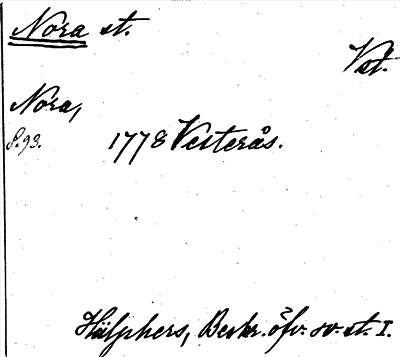 Nora st.
Vst.
Nora,
s. 93.
1778 Vesterås.
Hülphers, Beskr. öfv. sv. st. I.